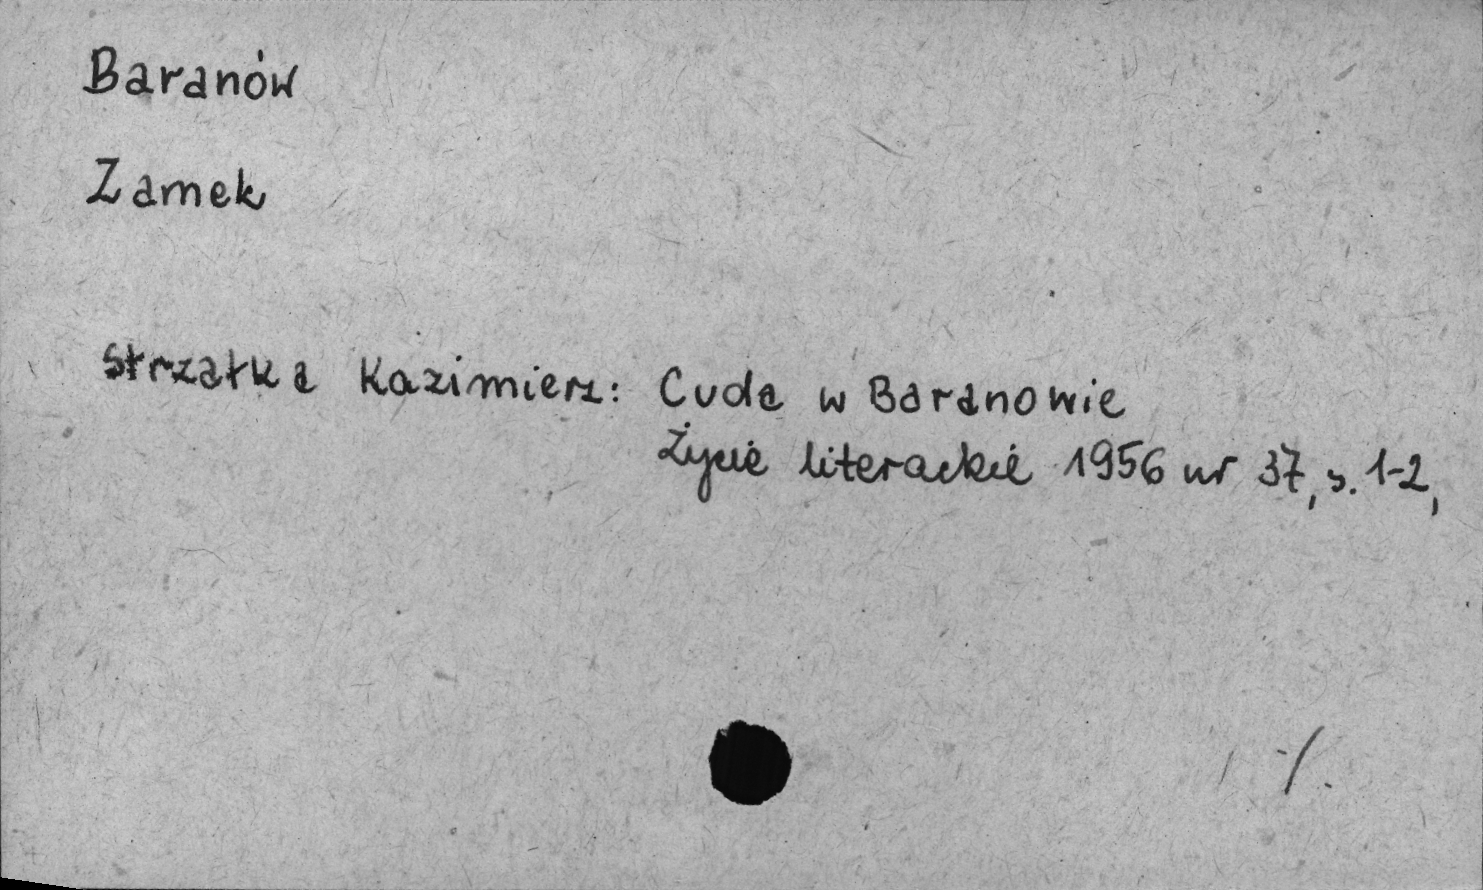 Baranów
Zamek
Strzałka Kazimierz: Cuda w Baranowie
Życie literackie 1956 nr 37, s. 1-2,